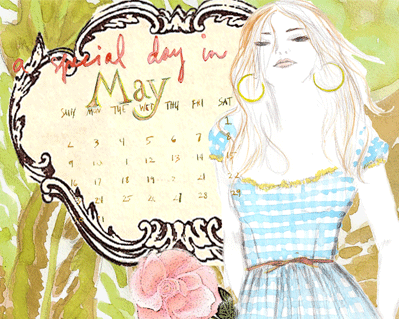 a special day in
May
SUN MON TUE WED THU FRI SAT
1
2 3 4 5 6 7 8
9 10 11 12 13 14 15
16 17 18 19 20 21 22
24 25 26 27 28 29
31